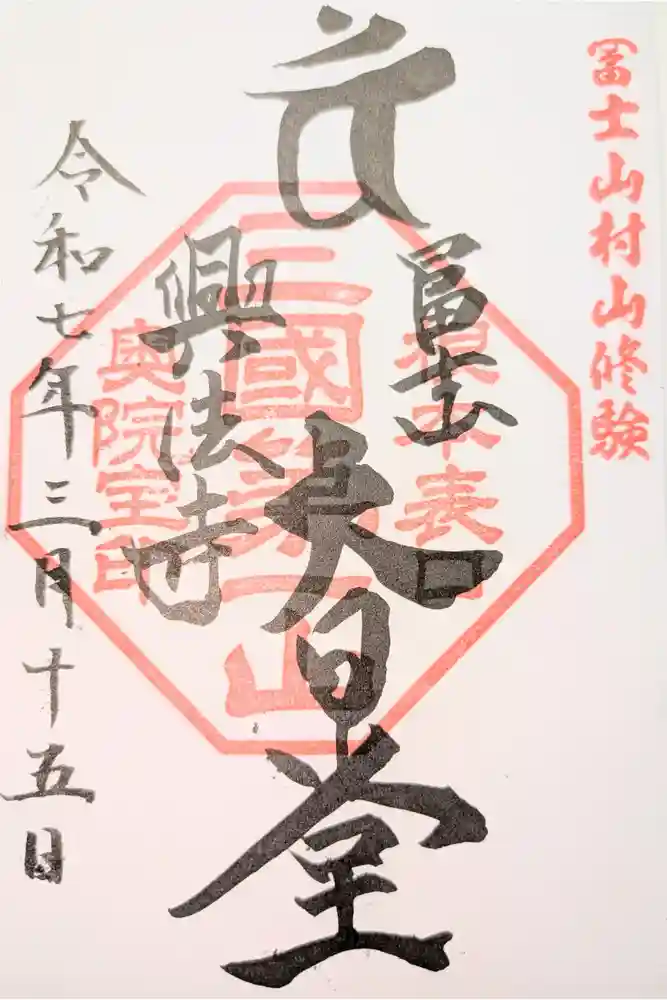 冨士山村山修験
富士山
根本表口
大日堂
三國第一山
興法寺
奥院室印
令和七年三月十五日